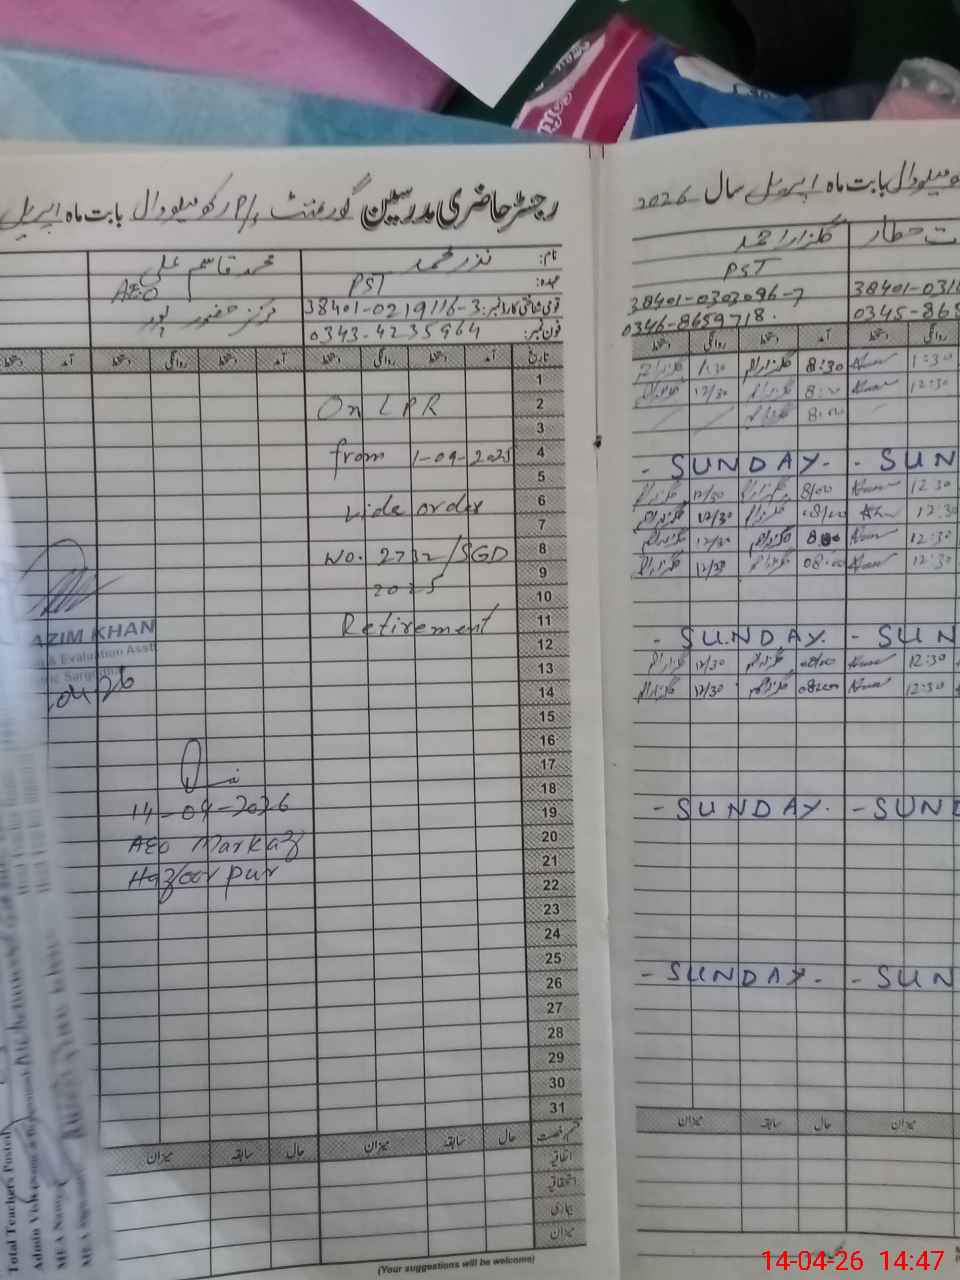 رجسٹر حاضری مدرسین گورنمنٹ P/S رکھ میلووال بابت ماہ اپریل
نام: نذر محمد
محمد قاسم علی
عہدہ: PST
AEO
قومی شناختی کارڈ نمبر: 38401-0219116-3
مرکز حضور پور
فون نمبر: 0343-4235964
تاریخ آمد دستخط روانگی دستخط آمد دستخط روانگی دستخط
1
2
3
4
5
6
7
8
9
10
11
12
13
14
15
16
17
18
19
20
21
22
23
24
25
26
27
28
29
30
31
On LPR
from 1-09-2025
vide order
No. 2732/SGD
2025
Retirement
AZIM KHAN
& Evaluation Asstt
.04/26
14-04-2026
AEO Markaz
Hazoor pur
حال سابقہ میزان حال سابقہ میزان
قسم رخصت
اتفاقیہ
استحقاقیہ
بیماری
میزان
(Your suggestions will be welcome)
Total Teachers Posted
Admin Visit
MEA Name
بابت ماہ اپریل سال 2026
گلزار احمد
PST
38401-0303096-7
38401-031
0346-8659718.
0345-865
دستخط روانگی دستخط آمد دستخط روانگی
گلزار احمد 1:30 گلزار احمد 8:30 1:30
12/30 8:00 12:30
8:00
- SUNDAY. - SUN
12/30 8/00 12:30
12/30 08/00 12:30
12/30 8:00 12:30
12/30 08:00 12:30
- SUNDAY. - SUN
12/30 08/00 12:30
12/30 08:00 12:30
- SUNDAY. - SUND
- SUNDAY. - SUN
میزان سابقہ حال میزان
14-04-26 14:47